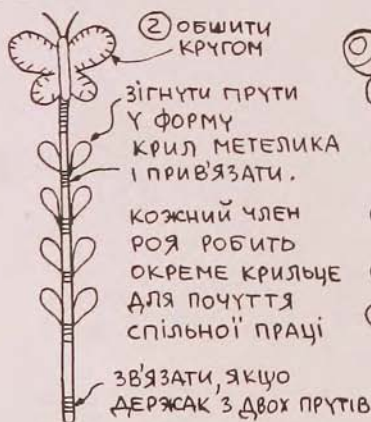 ② ОБШИТИ
КРУГОМ
ЗІГНУТИ ПРУТИ
У ФОРМУ
КРИЛ МЕТЕЛИКА
І ПРИВ'ЯЗАТИ.
КОЖНИЙ ЧЛЕН
РОЯ РОБИТЬ
ОКРЕМЕ КРИЛЬЦЕ
ДЛЯ ПОЧУТТЯ
СПІЛЬНОЇ ПРАЦІ
ЗВ'ЯЗАТИ, ЯКЩО
ДЕРЖАК З ДВОХ ПРУТІВ